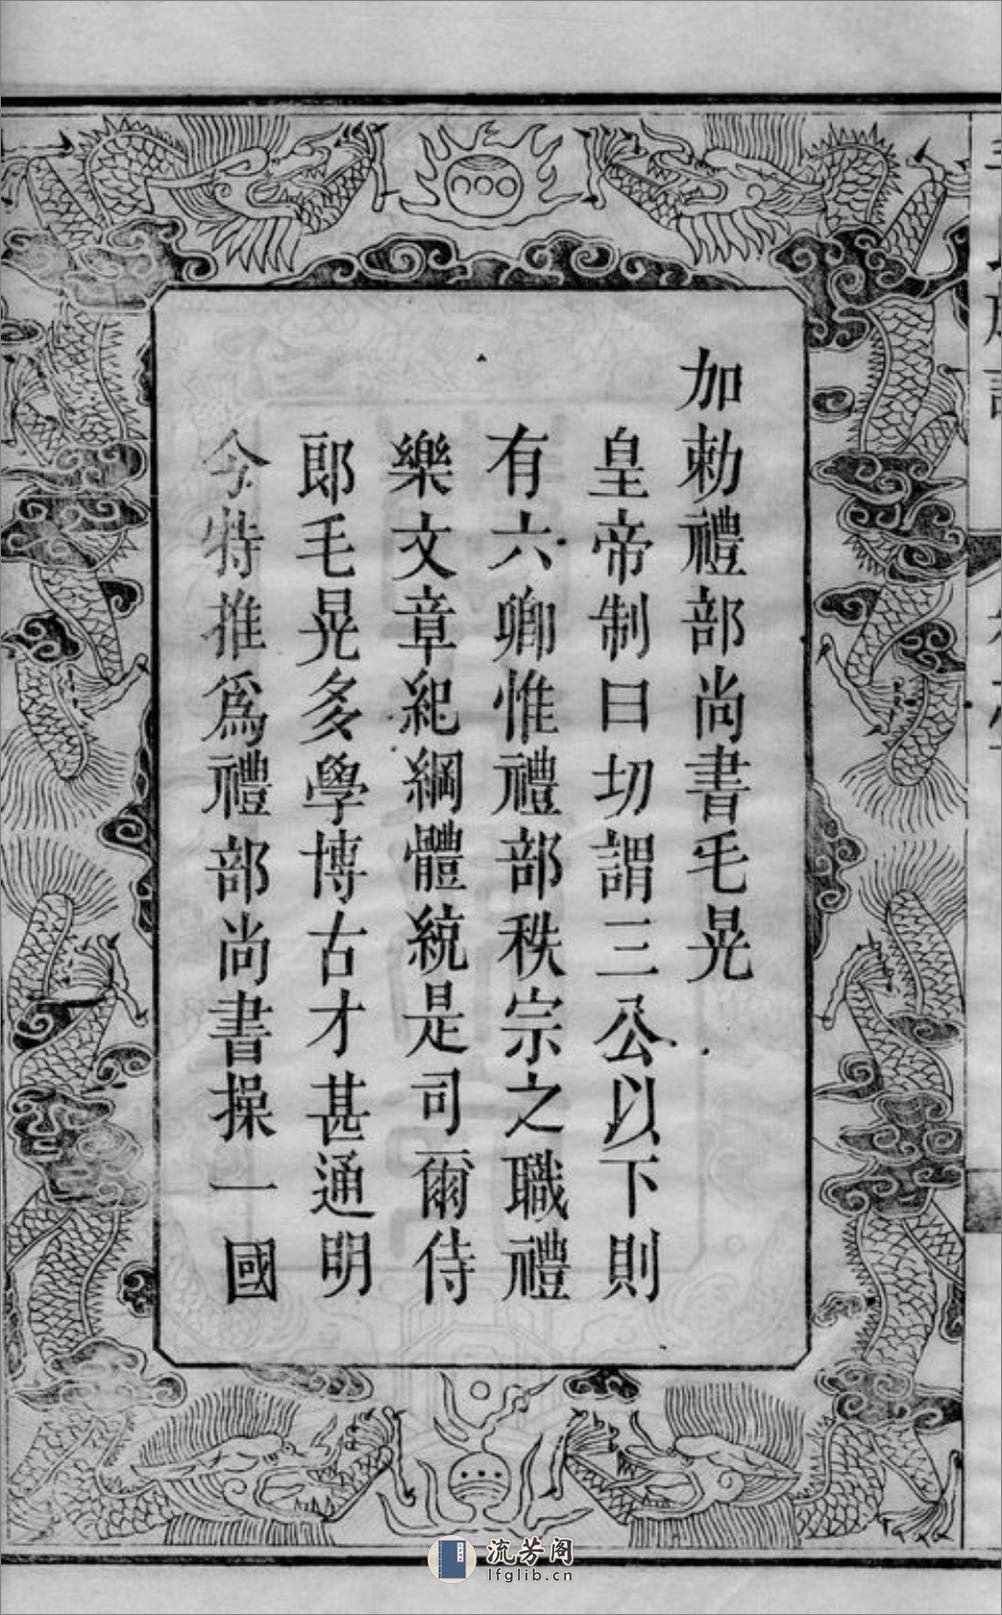 加勅禮部尚書毛晃
皇帝制曰切謂三公以下則
有六卿惟禮部秩宗之職禮
樂文章紀綱體統是司爾侍
郎毛晃多學博古才甚通明
今特推為禮部尚書操一國
流芳阁
lfglib.cn